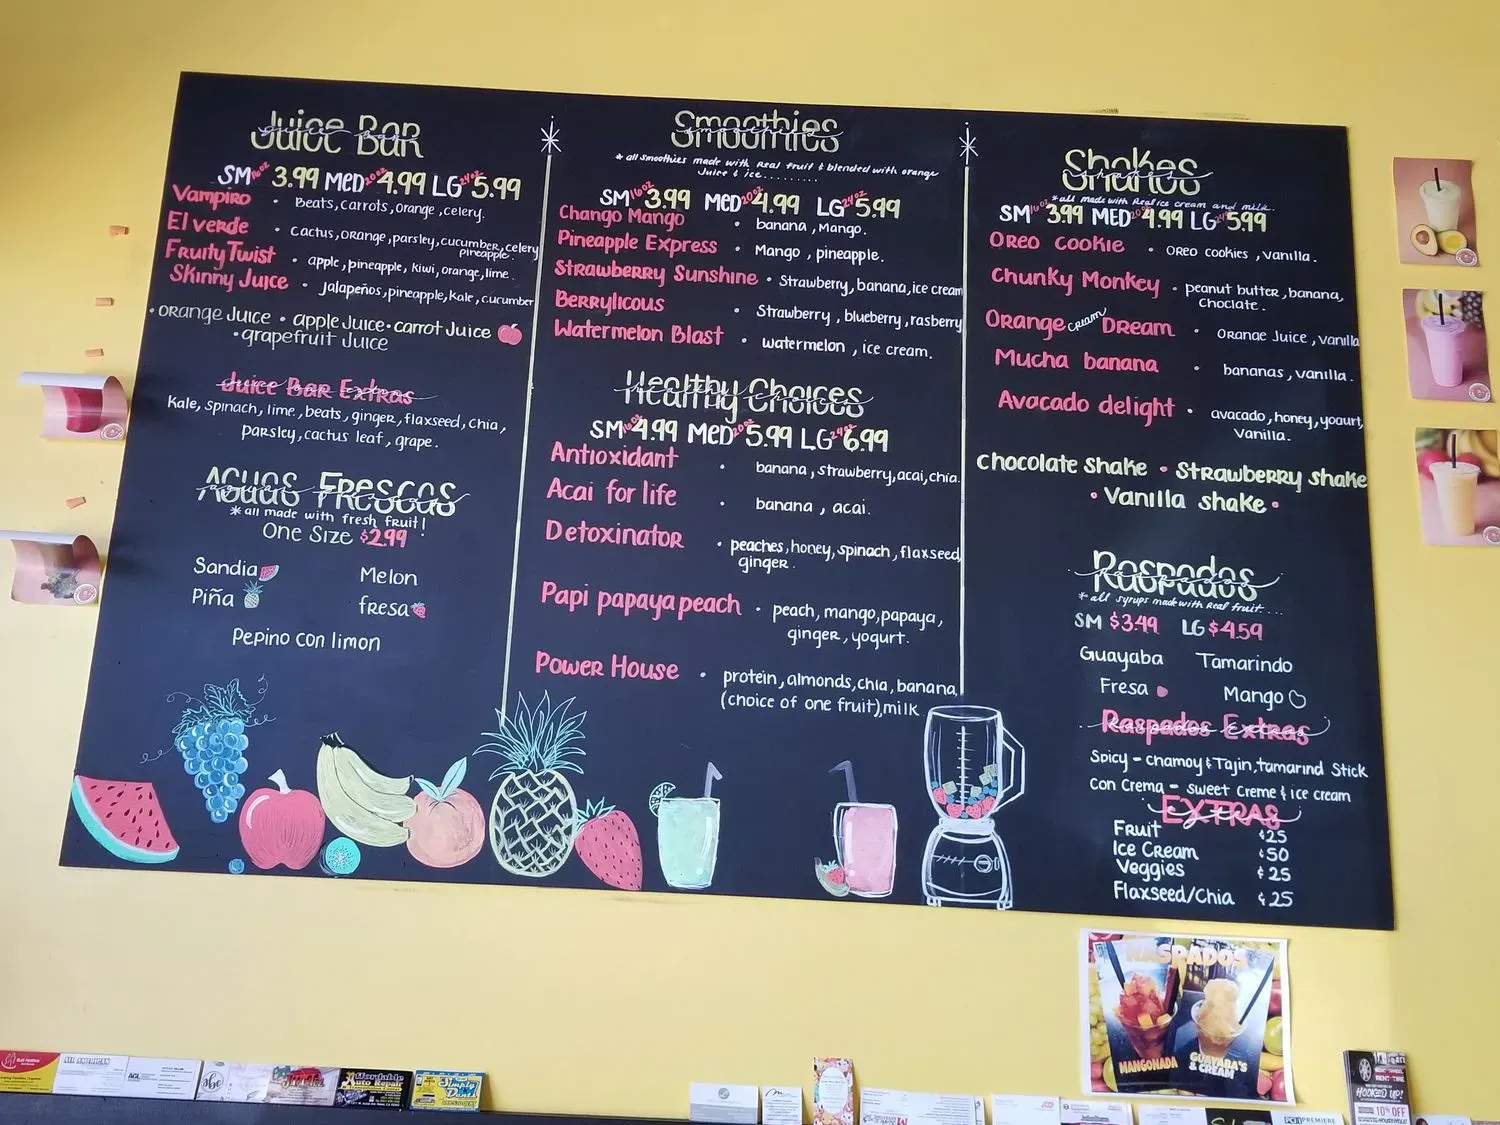 Juice Bar
juice bar
SM 16oz 3.99 MED 20oz 4.99 LG 24oz 5.99
Vampiro • Beats, carrots, orange, celery.
El verde • Cactus, orange, parsley, cucumber, celery
pineapple.
Fruity Twist • apple, pineapple, kiwi, orange, lime.
Skinny Juice • jalapeños, pineapple, kale, cucumber
• orange Juice • apple Juice • carrot Juice
• grapefruit Juice
Juice Bar Extras
Kale, spinach, lime, beats, ginger, flaxseed, chia,
parsley, cactus leaf, grape.
Aguas Frescas
aguas frescas
* all made with fresh fruit!
One Size $2.99
Sandia Melon
Piña fresa
Pepino con limon
Smoothies
smoothies
* all smoothies made with Real fruit & blended with orange
Juice & ice.........
SM 16oz 3.99 MED 20oz 4.99 LG 24oz 5.99
Chango Mango • banana, Mango.
Pineapple Express • Mango, pineapple.
Strawberry Sunshine • Strawberry, banana, ice cream
Berrylicous • Strawberry, blueberry, rasberry
Watermelon Blast • watermelon, ice cream.
Healthy Choices
SM 16oz 4.99 MED 20oz 5.99 LG 24oz 6.99
Antioxidant • banana, strawberry, acai, chia.
Acai for life • banana, acai.
Detoxinator • peaches, honey, spinach, flaxseed,
ginger.
Papi papaya peach • peach, mango, papaya,
ginger, yogurt.
Power House • protein, almonds, chia, banana,
(choice of one fruit), milk
Shakes
shakes
* all made with Real ice cream and milk.
SM 16oz 3.99 MED 20oz 4.99 LG 24oz 5.99
Oreo cookie • oreo cookies, vanilla.
Chunky Monkey • peanut butter, banana,
choclate.
Orange cream Dream • Orange Juice, vanilla
Mucha banana • bananas, vanilla.
Avocado delight • avacado, honey, yogurt,
Vanilla.
Chocolate shake • Strawberry shake
• Vanilla shake •
Raspados
raspados
* all syrups made with Real fruit....
SM $3.49 LG $4.59
Guayaba Tamarindo
Fresa Mango
Raspados Extras
Spicy - chamoy & Tajin, tamarind Stick
Con Crema - sweet Creme & ice cream
EXTRAS
Fruit ¢25
Ice Cream ¢50
Veggies ¢25
Flaxseed/Chia ¢25
RASPADOS
MANGONADA
GUAYABA'S
& CREAM
ALL AMERICAN
AGL
Affordable
Auto Repair
Simply
HOOKED UP!
10% OFF
PREMIERE